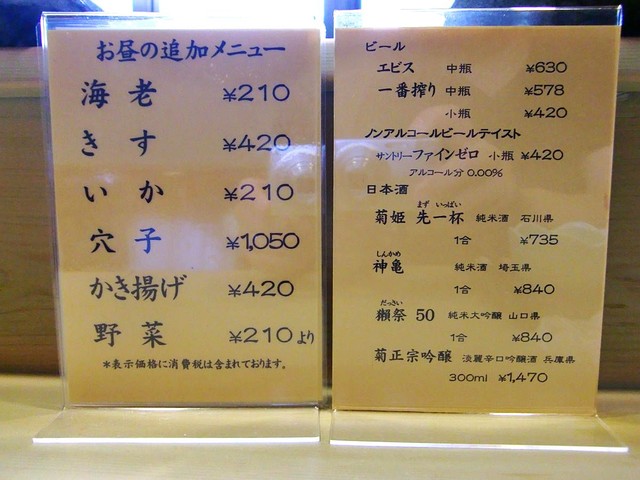 お昼の追加メニュー
海老 ¥210
きす ¥420
いか ¥210
穴子 ¥1,050
かき揚げ ¥420
野菜 ¥210より
*表示価格に消費税は含まれております。
ビール
エビス 中瓶 ¥630
一番搾り 中瓶 ¥578
小瓶 ¥420
ノンアルコールビールテイスト
サントリーファインゼロ 小瓶 ¥420
アルコール分 0.00%
日本酒
まず いっぱい
菊姫 先一杯 純米酒 石川県
1合 ¥735
しんかめ
神亀 純米酒 埼玉県
1合 ¥840
だっさい
獺祭 50 純米大吟醸 山口県
1合 ¥840
菊正宗吟醸 淡麗辛口吟醸酒 兵庫県
300ml ¥1,470